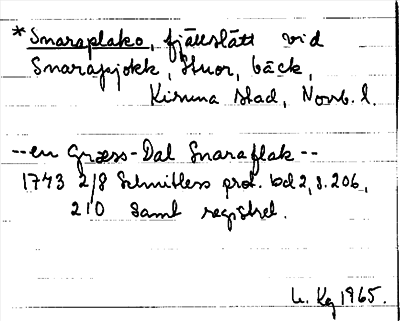 *Snaraplako, fjällslätt vid
Snarapjokk, Stuor, bäck,
Kiruna stad, Norrb. l.
--en Græss-Dal Snaraflak--
1743 2/8 Schnitlers prot. bd 2, s. 206,
210 samt registret.
U. Kg 1965.